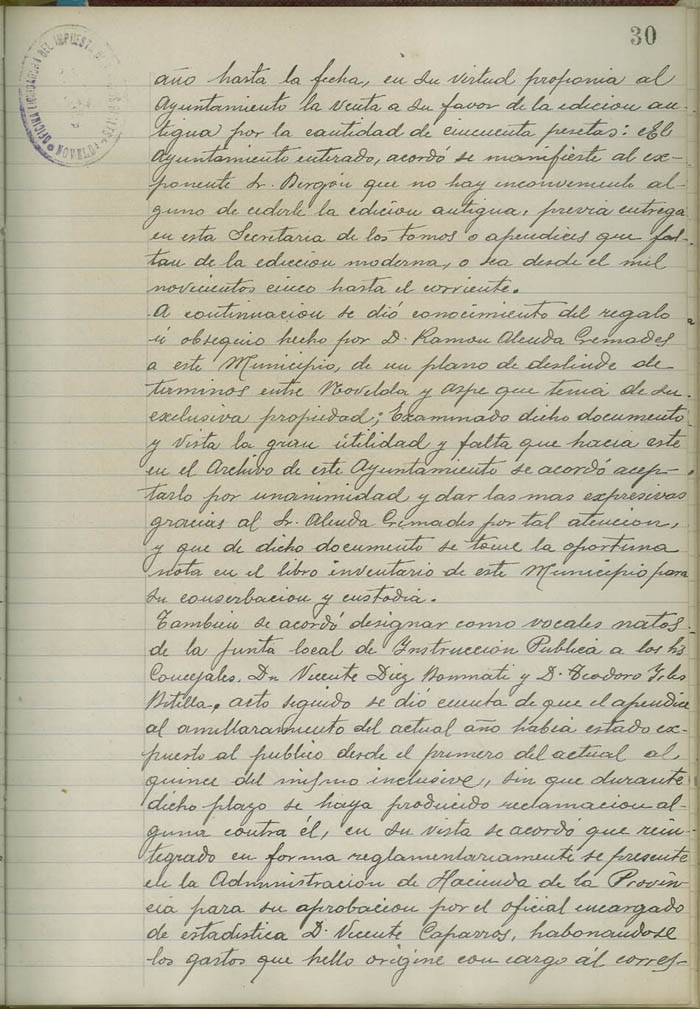 30
OFICINA LIQUIDADORA DEL IMPUESTO
año hasta la fecha, en su virtud proponia al
Ayuntamiento la venta a su favor de la edicion an-
tigua por la cantidad de cincuenta pesetas: El
Ayuntamiento enterado, acordó se manifieste al ex-
ponente Sr. Bergón que no hay inconveniente al-
guno de cederle la edicion antigua, previa entrega
en esta Secretaria de los tomos o apendices que fal-
tan de la ediccion moderna, o sea desde el mil
novecientos cinco hasta el corriente.
A continuacion se dió conocimiento del regalo
ú obsequio hecho por D. Ramon Alenda Cremades
a este Municipio, de un plano de deslinde de
terminos entre Novelda y Aspe que tenia de su
exclusiva propiedad; Examinado dicho documento
y vista la gran útilidad y falta que hacia este
en el Archivo de este Ayuntamiento se acordó acep-
tarlo por unanimidad y dar las mas expresivas
gracias al Sr. Alenda Cremades por tal atencion,
y que de dicho documento se tome la oportuna
nota en el libro inventario de este Municipio para
su conserbacion y custodia.
Tambien se acordó designar como vocales natos
de la Junta local de Instruccion Publica a los
Concejales, Dn Vicente Diez Bonmati y D. Teodoro
Bitilla, acto seguido se dió cuenta de que el apendice
al amillaramiento del actual año habia estado ex-
puesto al publico desde el primero del actual al
quince del mismo inclusive, sin que durante
dicho plazo se haya producido reclamacion al-
guna contra él, en su vista se acordó que rein-
tegrado en forma reglamentariamente se presente
en la Administracion de Hacienda de la Provin-
cia para su aprobacion por el oficial encargado
de estadistica D. Vicente Caparros, habonandose
los gastos que hello origine con cargo ál corres-